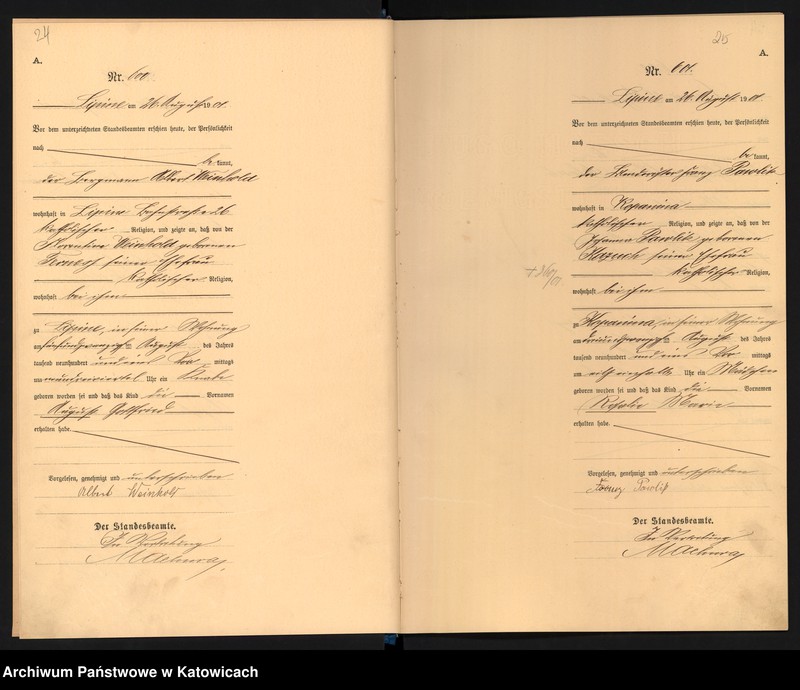 24
A.
Nr. 600
Lipine am 26. August 1901.
Vor dem unterzeichneten Standesbeamten erschien heute, der Persönlichkeit
nach
be kannt,
der Bergmann Albert Weinhold
wohnhaft in Lipine Bahnstraße 26
katholischer Religion, und zeigte an, daß von der
Florentine Weinhold geborenen
seiner Ehefrau
katholischer Religion,
wohnhaft bei ihm
zu Lipine, in seiner Wohnung
am fünfundzwanzigsten August des Jahres
tausend neunhundert und eins Vor mittags
um Uhr ein Knabe
geboren worden sei und daß das Kind die Vornamen
August Gottfried
erhalten habe.
Vorgelesen, genehmigt und unterschrieben
Albert Weinhold
Der Standesbeamte.
In Vertretung
25
A.
Nr. 601.
Lipine am 26. August 1901.
Vor dem unterzeichneten Standesbeamten erschien heute, der Persönlichkeit
nach
be kannt,
der Franz Pawlik
wohnhaft in Kopanina
katholischer Religion, und zeigte an, daß von der
Johanna Pawlik geborenen
seiner Ehefrau
katholischer Religion,
wohnhaft bei ihm
zu Kopanina, in seiner Wohnung
am dreiundzwanzigsten August des Jahres
tausend neunhundert und eins Vor mittags
um acht einhalb Uhr ein Mädchen
geboren worden sei und daß das Kind die Vornamen
Rosalie Marie
erhalten habe.
Vorgelesen, genehmigt und unterschrieben
Franz Pawlik
Der Standesbeamte.
In Vertretung
Archiwum Państwowe w Katowicach